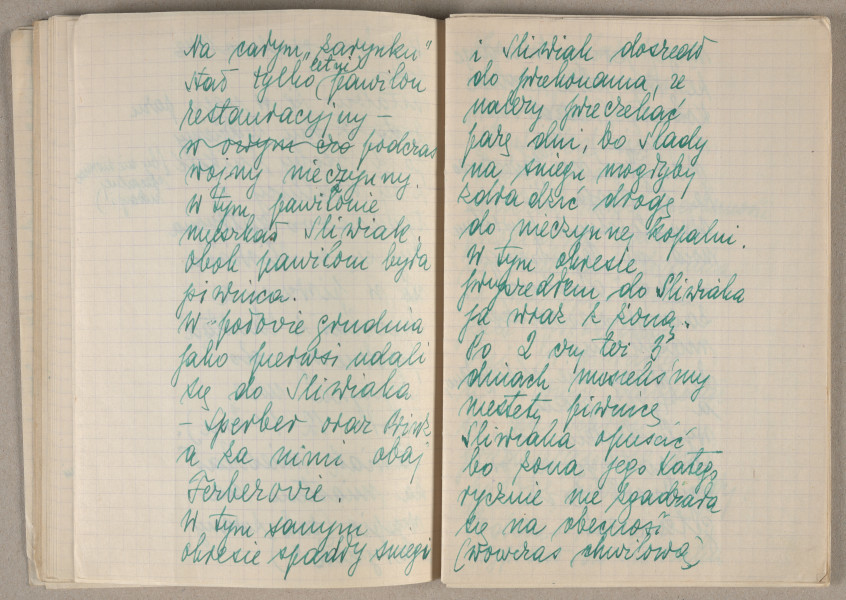 Na całym „żarynku"
stał tylko letni pawilon
restauracyjny –
w owym cza podczas
wojny nieczynny.
W tym pawilonie
mieszkał Sliwiak.
obok pawilonu była
piwnica.
W połowie grudnia
jako pierwsi udali
się do Sliwiaka
– Sperber oraz
a za nimi obaj
Ferberowie.
W tym samym
okresie spadły śniegi
i Sliwiak doszedł
do przekonania, że
należy przeczekać
parę dni, bo ślady
na śniegu mogłyby
zdradzić drogę
do nieczynnej kopalni.
W tym okresie
przyszedłem do Sliwiaka
ja wraz z żoną.
Po 2 czy też 3
dniach musieliśmy
niestety piwnicę
Sliwiaka opuścić
bo żona jego kateg
rycznie nie zgadzała
się na obecność
(wówczas chwilową)